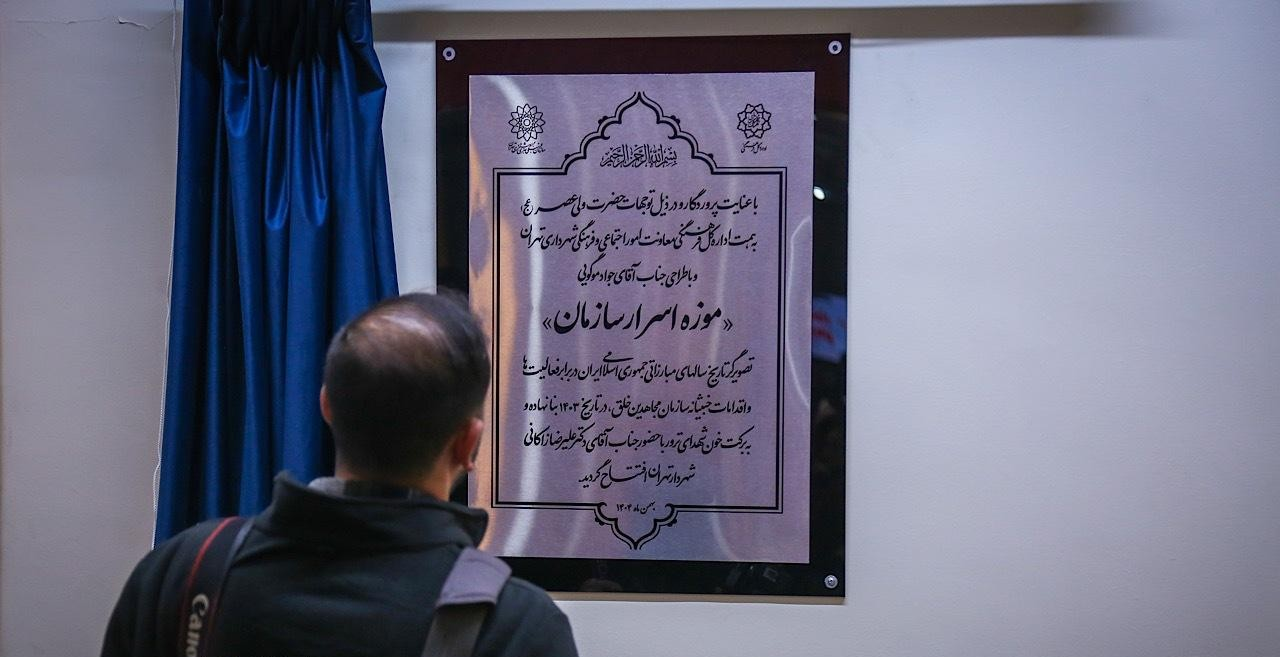 بسم الله الرحمن الرحیم
با عنایت پروردگار و در ذیل توجهات حضرت ولی عصر (عج)
به همت اداره کل فرهنگی معاونت امور اجتماعی و فرهنگی شهرداری تهران
و با طراحی جناب آقای جواد موگویی
«موزه اسرار سازمان»
تصویرگر تاریخ سالهای مبارزاتی جمهوری اسلامی ایران در برابر فعالیت ها
و اقدامات خبیثانه سازمان مجاهدین خلق، در تاریخ ۱۴۰۳ بنا نهاده و
به برکت خون شهدای ترور با حضور جناب آقای دکتر علیرضا زاکانی
شهردار تهران افتتاح گردید.
بهمن ماه ۱۴۰۴
Cano